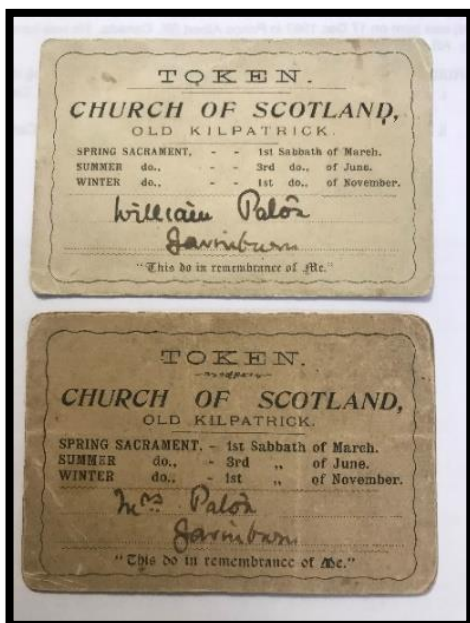 TOKEN.
CHURCH OF SCOTLAND,
OLD KILPATRICK.
SPRING SACRAMENT, - - 1st Sabbath of March.
SUMMER do., - - 3rd do., of June.
WINTER do., - - 1st do., of November.
William Paton
Gavinburn
"This do in remembrance of Me."
TOKEN.
CHURCH OF SCOTLAND,
OLD KILPATRICK.
SPRING SACRAMENT, - 1st Sabbath of March.
SUMMER do., - 3rd „ of June.
WINTER do., - 1st „ of November.
Mrs Paton
Gavinburn
"This do in remembrance of Me."